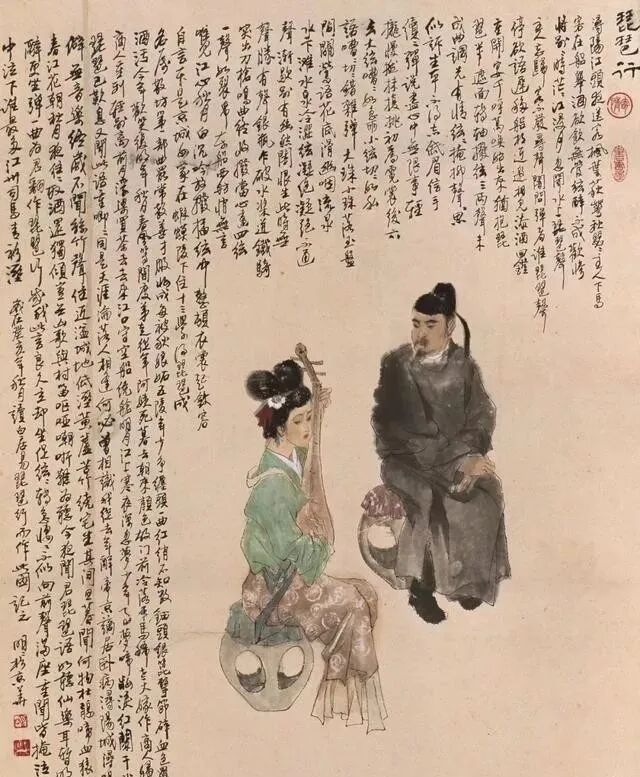 琵琶行
潯陽江頭夜送客楓葉荻花秋瑟瑟主人下馬
客在船舉酒欲飲無管絃醉不成歡慘
將別時茫茫江浸月忽聞水上琵琶聲
主人忘歸客不發尋聲闇問彈者誰琵琶聲
停欲語遲移船相近邀相見添酒回燈
重開宴千呼萬喚始出來猶抱琵
琶半遮面轉軸撥絃三兩聲未
成曲調先有情絃絃掩抑聲聲思
似訴生平不得志低眉信手
續續彈說盡心中無限事輕
攏慢撚抹復挑初為霓裳後六
么大絃嘈嘈如急雨小絃切切如私
語嘈嘈切切錯雜彈大珠小珠落玉盤
間關鶯語花底滑幽咽流泉
水下灘水泉冷澀絃凝絕凝絕不通
聲漸歇別有幽愁闇恨生此時無
聲勝有聲銀瓶乍破水漿迸鐵騎
突出刀槍鳴曲終收撥當心畫四絃
一聲如裂帛東船西舫悄無言
唯見江心秋月白沉吟放撥插絃中整頓衣裳起斂容
自言本是京城女家在蝦蟆陵下住十三學得琵琶成
名屬教坊第一部曲罷常教善才服妝成每被秋娘妒五陵年少爭纏頭一曲紅綃不知數鈿頭銀篦擊節碎血色羅
酒污今年歡笑復明年秋月春風等閒度弟走從軍阿姨死暮去朝來顏色故門前冷落車馬稀老大嫁作商人婦
商人重利輕別離前月浮梁買茶去去來江口守空船繞船明月江水寒夜深忽夢少年事夢啼妝淚紅闌干
琵琶已歎息又聞此語重唧唧同是天涯淪落人相逢何必曾相識我從去年辭帝京謫居臥病潯陽城潯陽
僻無音樂終歲不聞絲竹聲住近湓城地低濕黃蘆苦竹繞宅生其間旦暮聞何物杜鵑啼血猿
春江花朝秋月夜往往取酒還獨傾豈無山歌與村笛嘔啞嘲哳難為聽今夜聞君琵琶語如聽仙樂耳暫明
辭更坐彈一曲為君翻作琵琶行感我此言良久立卻坐促絃絃轉急淒淒不似向前聲滿座重聞皆掩泣
中泣下誰最多江州司馬青衫濕 歲在癸亥年秋月讀白居易琵琶行而作此圖記之 明於京華